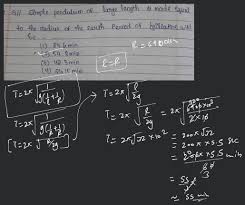 Simple pendulum of large length is made equal
to the radius of the earth. Period of oscillation will
be
(1) 84.6 min
(2) 59.8 min
(3) 42.3 min
(4) 21.15 min
R = 6400 km
l = R
T = 2π √(1 / g(1/l + 1/R))
T = 2π √(1 / g(1/R + 1/R))
[T = 2π √(R/2g)]
T = 2π √(R/2g)
T = 2π √(R/2g) = 2π √(6400×10³ / 2×10)
T = 2π √32 × 10²
= 200π √32
= 200π × 5.5 sec
= 200π × 5.5 / 60 min
= 55π / 3
≈ 55 min